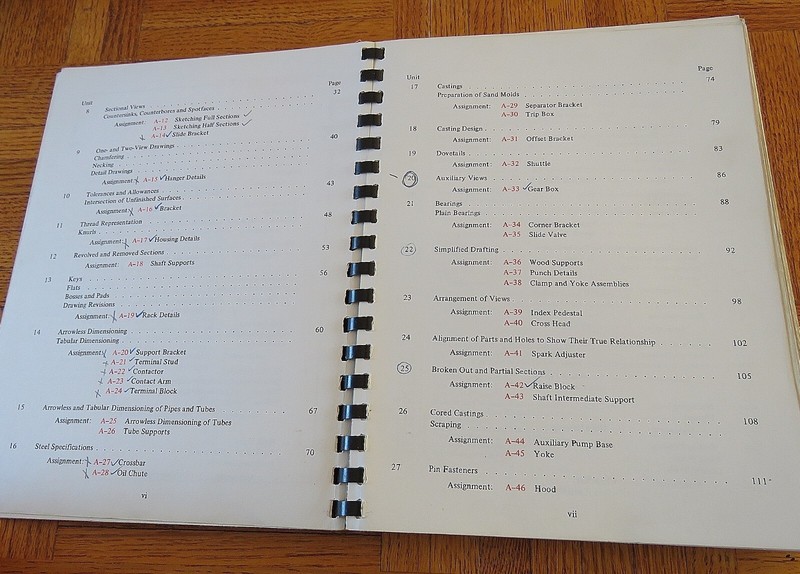 Page
Unit
8 Sectional Views 32
Countersinks, Counterbores and Spotfaces
Assignment: A-12 Sketching Full Sections
A-13 Sketching Half Sections
A-14 Slide Bracket
9 One- and Two-View Drawings 40
Chamfering
Necking
Detail Drawings
Assignment: A-15 Hanger Details
10 Tolerances and Allowances 43
Intersection of Unfinished Surfaces
Assignment: A-16 Bracket
11 Thread Representation 48
Knurls
Assignment: A-17 Housing Details
12 Revolved and Removed Sections 53
Assignment: A-18 Shaft Supports
13 Keys 56
Flats
Bosses and Pads
Drawing Revisions
Assignment: A-19 Rack Details
14 Arrowless Dimensioning 60
Tabular Dimensioning
Assignment: A-20 Support Bracket
A-21 Terminal Stud
A-22 Contactor
A-23 Contact Arm
A-24 Terminal Block
15 Arrowless and Tabular Dimensioning of Pipes and Tubes 67
Assignment: A-25 Arrowless Dimensioning of Tubes
A-26 Tube Supports
16 Steel Specifications 70
Assignment: A-27 Crossbar
A-28 Oil Chute
vi
Unit Page
17 Castings 74
Preparation of Sand Molds
Assignment: A-29 Separator Bracket
A-30 Trip Box
18 Casting Design 79
Assignment: A-31 Offset Bracket
19 Dovetails 83
Assignment: A-32 Shuttle
20 Auxiliary Views 86
Assignment: A-33 Gear Box
21 Bearings 88
Plain Bearings
Assignment: A-34 Corner Bracket
A-35 Slide Valve
22 Simplified Drafting 92
Assignment: A-36 Wood Supports
A-37 Punch Details
A-38 Clamp and Yoke Assemblies
23 Arrangement of Views 98
Assignment: A-39 Index Pedestal
A-40 Cross Head
24 Alignment of Parts and Holes to Show Their True Relationship 102
Assignment: A-41 Spark Adjuster
25 Broken Out and Partial Sections 105
Assignment: A-42 Raise Block
A-43 Shaft Intermediate Support
26 Cored Castings 108
Scraping
Assignment: A-44 Auxiliary Pump Base
A-45 Yoke
27 Pin Fasteners 111
Assignment: A-46 Hood
vii